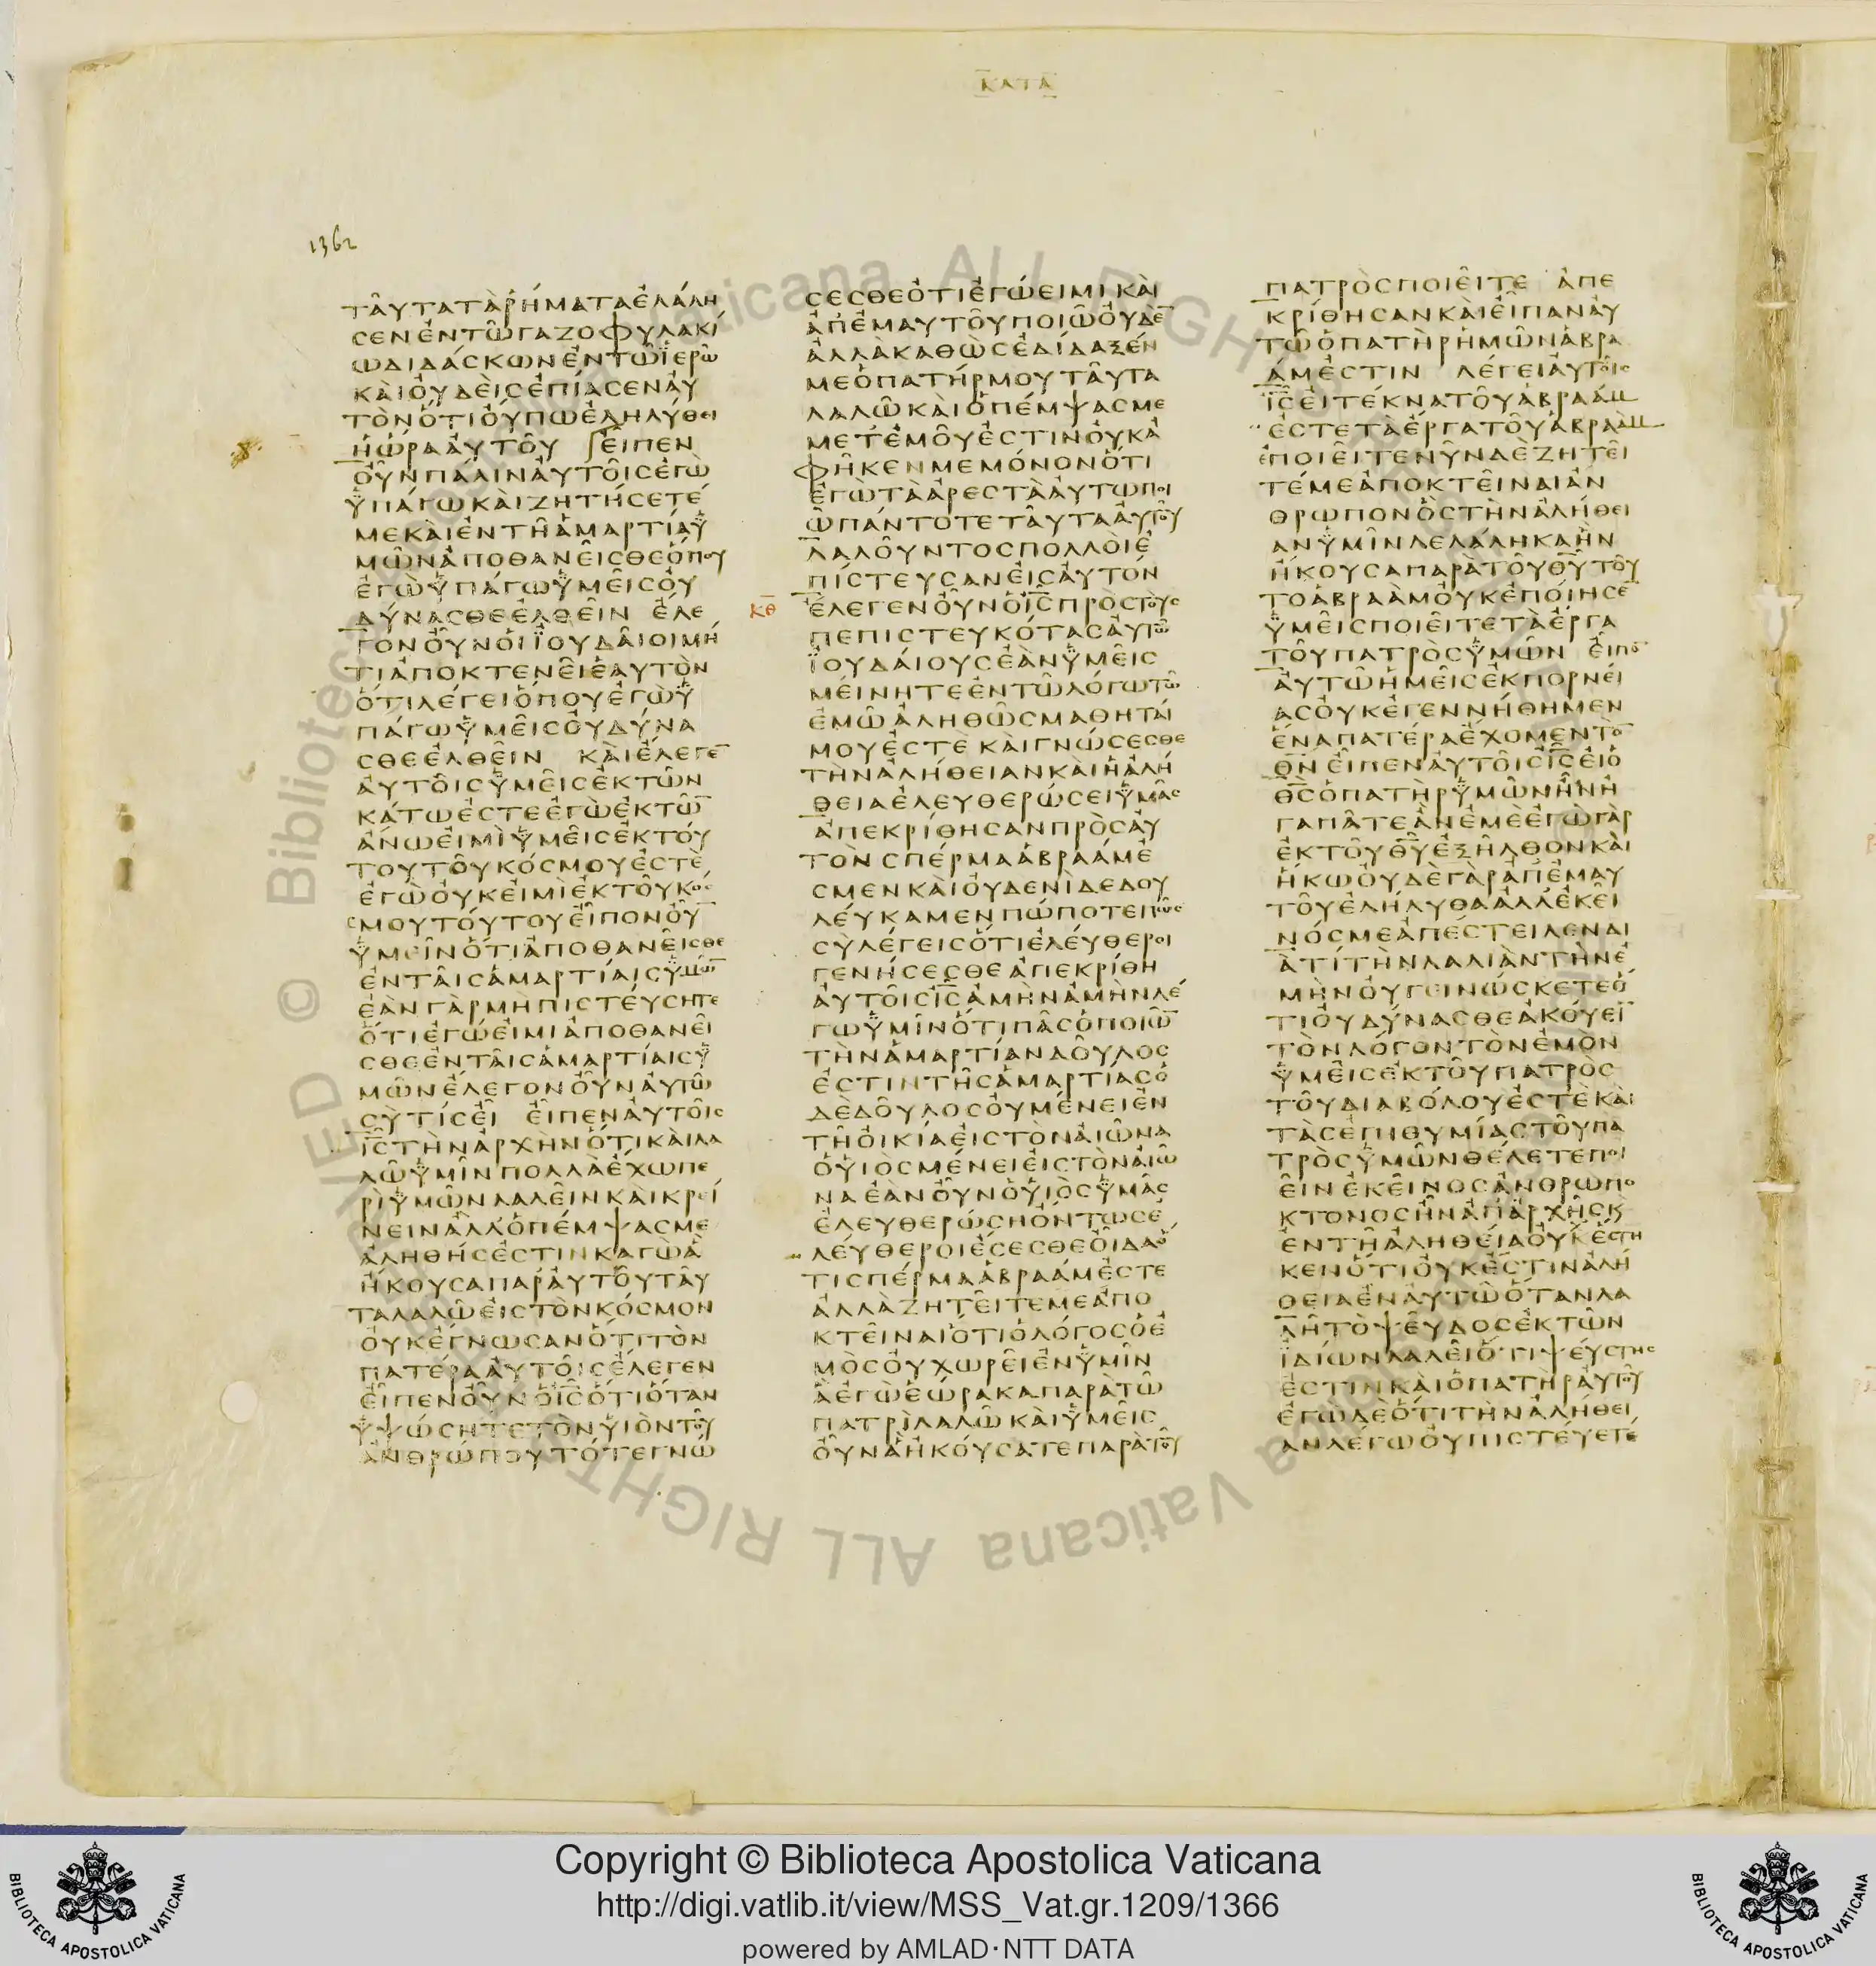 ΚΑΤΑ
1362
ΤΑΥΤΑΤΑΡΗΜΑΤΑΕΛΑΛΗ
ϹΕΝΕΝΤΩΓΑΖΟΦΥΛΑΚΙ
ΩΔΙΔΑϹΚΩΝΕΝΤΩΪΕΡΩ
ΚΑΙΟΥΔΕΙϹΕΠΙΑϹΕΝΑΥ
ΤΟΝΟΤΙΟΥΠΩΕΛΗΛΥΘΕΙ
ΗΩΡΑΑΥΤΟΥ ΕΙΠΕΝ
ΟΥΝΠΑΛΙΝΑΥΤΟΙϹΕΓΩ
ΫΠΑΓΩΚΑΙΖΗΤΗϹΕΤΕ
ΜΕΚΑΙΕΝΤΗΑΜΑΡΤΙΑΫ
ΜΩΝΑΠΟΘΑΝΕΙϹΘΕΟΠΟΥ
ΕΓΩΫΠΑΓΩΫΜΕΙϹΟΥ
ΔΥΝΑϹΘΕΕΛΘΕΙΝ ΕΛΕ
ΓΟΝΟΥΝΟΙΪΟΥΔΑΙΟΙΜΗ
ΤΙΑΠΟΚΤΕΝΕΙΕΑΥΤΟΝ
ΟΤΙΛΕΓΕΙΟΠΟΥΕΓΩΫ
ΠΑΓΩΫΜΕΙϹΟΥΔΥΝΑ
ϹΘΕΕΛΘΕΙΝ ΚΑΙΕΛΕΓΕ̅
ΑΥΤΟΙϹΫΜΕΙϹΕΚΤΩΝ
ΚΑΤΩΕϹΤΕΕΓΩΕΚΤΩ̅
ΑΝΩΕΙΜΙΫΜΕΙϹΕΚΤΟΥ
ΤΟΥΤΟΥΚΟϹΜΟΥΕϹΤΕ
ΕΓΩΟΥΚΕΙΜΙΕΚΤΟΥΚΟ
ϹΜΟΥΤΟΥΤΟΥΕΙΠΟΝΟΥ̅
ΫΜΕΙΝΟΤΙΑΠΟΘΑΝΕΙϹΘΕ
ΕΝΤΑΙϹΑΜΑΡΤΙΑΙϹΫΜΩ̅
ΕΑΝΓΑΡΜΗΠΙϹΤΕΥϹΗΤΕ
ΟΤΙΕΓΩΕΙΜΙΑΠΟΘΑΝΕΙ
ϹΘΕΕΝΤΑΙϹΑΜΑΡΤΙΑΙϹΫ
ΜΩΝΕΛΕΓΟΝΟΥΝΑΥΤΩ
ϹΥΤΙϹΕΙ ΕΙΠΕΝΑΥΤΟΙϹ
Ι̅Ϲ̅ΤΗΝΑΡΧΗΝΟΤΙΚΑΙΛΑ
ΛΩΫΜΙΝΠΟΛΛΑΕΧΩΠΕ
ΡΙΫΜΩΝΛΑΛΕΙΝΚΑΙΚΡΕΙ
ΝΕΙΝΑΛΛΟΠΕΜΨΑϹΜΕ
ΑΛΗΘΗϹΕϹΤΙΝΚΑΓΩΑ
ΗΚΟΥϹΑΠΑΡΑΥΤΟΥΤΑΥ
ΤΑΛΑΛΩΕΙϹΤΟΝΚΟϹΜΟΝ
ΟΥΚΕΓΝΩϹΑΝΟΤΙΤΟΝ
ΠΑΤΕΡΑΑΥΤΟΙϹΕΛΕΓΕΝ
ΕΙΠΕΝΟΥΝΟΙ̅Ϲ̅ΟΤΙΟΤΑΝ
ΫΨΩϹΗΤΕΤΟΝΥΙΟΝΤΟΥ
ΑΝΘΡΩΠΟΥΤΟΤΕΓΝΩ
ϹΕϹΘΕΟΤΙΕΓΩΕΙΜΙΚΑΙ
ΑΠΕΜΑΥΤΟΥΠΟΙΩΟΥΔΕ̅
ΑΛΛΑΚΑΘΩϹΕΔΙΔΑΞΕΝ
ΜΕΟΠΑΤΗΡΜΟΥΤΑΥΤΑ
ΛΑΛΩΚΑΙΟΠΕΜΨΑϹΜΕ
ΜΕΤΕΜΟΥΕϹΤΙΝΟΥΚΑ
ΦΗΚΕΝΜΕΜΟΝΟΝΟΤΙ
ΕΓΩΤΑΑΡΕϹΤΑΑΥΤΩΠΟΙ
ΩΠΑΝΤΟΤΕΤΑΥΤΑΑΥΤΟΥ
ΛΑΛΟΥΝΤΟϹΠΟΛΛΟΙΕ
ΠΙϹΤΕΥϹΑΝΕΙϹΑΥΤΟΝ
ΚΘ ΕΛΕΓΕΝΟΥΝΟΙ̅Ϲ̅ΠΡΟϹΤΟΥϹ
ΠΕΠΙϹΤΕΥΚΟΤΑϹΑΥΤΩ
ΪΟΥΔΑΙΟΥϹΕΑΝΫΜΕΙϹ
ΜΕΙΝΗΤΕΕΝΤΩΛΟΓΩΤΩ
ΕΜΩΑΛΗΘΩϹΜΑΘΗΤΑΙ
ΜΟΥΕϹΤΕ ΚΑΙΓΝΩϹΕϹΘΕ
ΤΗΝΑΛΗΘΕΙΑΝΚΑΙΗΑΛΗ
ΘΕΙΑΕΛΕΥΘΕΡΩϹΕΙΫΜΑϹ
ΑΠΕΚΡΙΘΗϹΑΝΠΡΟϹΑΥ
ΤΟΝϹΠΕΡΜΑΑΒΡΑΑΜΕ
ϹΜΕΝΚΑΙΟΥΔΕΝΙΔΕΔΟΥ
ΛΕΥΚΑΜΕΝΠΩΠΟΤΕΠΩϹ
ϹΥΛΕΓΕΙϹΟΤΙΕΛΕΥΘΕΡΟΙ
ΓΕΝΗϹΕϹΘΕΑΠΕΚΡΙΘΗ
ΑΥΤΟΙϹΙ̅Ϲ̅ΑΜΗΝΑΜΗΝΛΕ
ΓΩΫΜΙΝΟΤΙΠΑϹΟΠΟΙΩ̅
ΤΗΝΑΜΑΡΤΙΑΝΔΟΥΛΟϹ
ΕϹΤΙΝΤΗϹΑΜΑΡΤΙΑϹΟ
ΔΕΔΟΥΛΟϹΟΥΜΕΝΕΙΕΝ
ΤΗΟΙΚΙΑΕΙϹΤΟΝΑΙΩΝΑ
ΟΥΙΟϹΜΕΝΕΙΕΙϹΤΟΝΑΙΩ
ΝΑΕΑΝΟΥΝΟΫΙΟϹΫΜΑϹ
ΕΛΕΥΘΕΡΩϹΗΟΝΤΩϹΕ
ΛΕΥΘΕΡΟΙΕϹΕϹΘΕΟΙΔΑΟ
ΤΙϹΠΕΡΜΑΑΒΡΑΑΜΕϹΤΕ
ΑΛΛΑΖΗΤΕΙΤΕΜΕΑΠΟ
ΚΤΕΙΝΑΙΟΤΙΟΛΟΓΟϹΟΕ
ΜΟϹΟΥΧΩΡΕΙΕΝΫΜΙΝ
ΑΕΓΩΕΩΡΑΚΑΠΑΡΑΤΩ
ΠΑΤΡΙΛΑΛΩΚΑΙΫΜΕΙϹ
ΟΥΝΑΗΚΟΥϹΑΤΕΠΑΡΑΤΟΥ
ΠΑΤΡΟϹΠΟΙΕΙΤΕ ΑΠΕ
ΚΡΙΘΗϹΑΝΚΑΙΕΙΠΑΝΑΥ
ΤΩΟΠΑΤΗΡΗΜΩΝΑΒΡΑ
ΑΜΕϹΤΙΝ ΛΕΓΕΙΑΥΤΟΙϹ
Ι̅Ϲ̅ΕΙΤΕΚΝΑΤΟΥΑΒΡΑΑΜ
ΕϹΤΕΤΑΕΡΓΑΤΟΥΑΒΡΑΑΜ
ΕΠΟΙΕΙΤΕΝΥΝΔΕΖΗΤΕΙ
ΤΕΜΕΑΠΟΚΤΕΙΝΑΙΑΝ
ΘΡΩΠΟΝΟϹΤΗΝΑΛΗΘΕΙ
ΑΝΫΜΙΝΛΕΛΑΛΗΚΑΗΝ
ΗΚΟΥϹΑΠΑΡΑΤΟΥΘ̅Υ̅ΤΟΥ
ΤΟΑΒΡΑΑΜΟΥΚΕΠΟΙΗϹΕ̅
ΫΜΕΙϹΠΟΙΕΙΤΕΤΑΕΡΓΑ
ΤΟΥΠΑΤΡΟϹΫΜΩΝ ΕΙΠΟ̅
ΑΥΤΩΗΜΕΙϹΕΚΠΟΡΝΕΙ
ΑϹΟΥΚΕΓΕΝΝΗΘΗΜΕΝ
ΕΝΑΠΑΤΕΡΑΕΧΟΜΕΝΤΟ̅
Θ̅Ν̅ΕΙΠΕΝΑΥΤΟΙϹΙ̅Ϲ̅ΕΙΟ
Θ̅Ϲ̅ΟΠΑΤΗΡΫΜΩΝΗΝΗ
ΓΑΠΑΤΕΑΝΕΜΕΕΓΩΓΑΡ
ΕΚΤΟΥΘ̅Υ̅ΕΞΗΛΘΟΝΚΑΙ
ΗΚΩΟΥΔΕΓΑΡΑΠΕΜΑΥ
ΤΟΥΕΛΗΛΥΘΑΑΛΛΕΚΕΙ
ΝΟϹΜΕΑΠΕϹΤΕΙΛΕΝΔΙ
ΑΤΙΤΗΝΛΑΛΙΑΝΤΗΝΕ
ΜΗΝΟΥΓΕΙΝΩϹΚΕΤΕΟ
ΤΙΟΥΔΥΝΑϹΘΕΑΚΟΥΕΙ̅
ΤΟΝΛΟΓΟΝΤΟΝΕΜΟΝ
ΫΜΕΙϹΕΚΤΟΥΠΑΤΡΟϹ
ΤΟΥΔΙΑΒΟΛΟΥΕϹΤΕΚΑΙ
ΤΑϹΕΠΙΘΥΜΙΑϹΤΟΥΠΑ
ΤΡΟϹΫΜΩΝΘΕΛΕΤΕΠΟΙ
ΕΙΝΕΚΕΙΝΟϹΑΝΘΡΩΠΟ
ΚΤΟΝΟϹΗΝΑΠΑΡΧΗϹΚ
ΕΝΤΗΑΛΗΘΕΙΑΟΥΚΕϹΤΗ
ΚΕΝΟΤΙΟΥΚΕϹΤΙΝΑΛΗ
ΘΕΙΑΕΝΑΥΤΩΟΤΑΝΛΑ
ΛΗΤΟΨΕΥΔΟϹΕΚΤΩΝ
ΪΔΙΩΝΛΑΛΕΙΟΤΙΨΕΥϹΤΗϹ
ΕϹΤΙΝΚΑΙΟΠΑΤΗΡΑΥΤΟΥ
ΕΓΩΔΕΟΤΙΤΗΝΑΛΗΘΕΙ
ΑΝΛΕΓΩΟΥΠΙϹΤΕΥΕΤΕ
Copyright © Biblioteca Apostolica Vaticana
http://digi.vatlib.it/view/MSS_Vat.gr.1209/1366
powered by AMLAD·NTT DATA
BIBLIOTECA APOSTOLICA VATICANA
BIBLIOTECA APOSTOLICA VATICANA